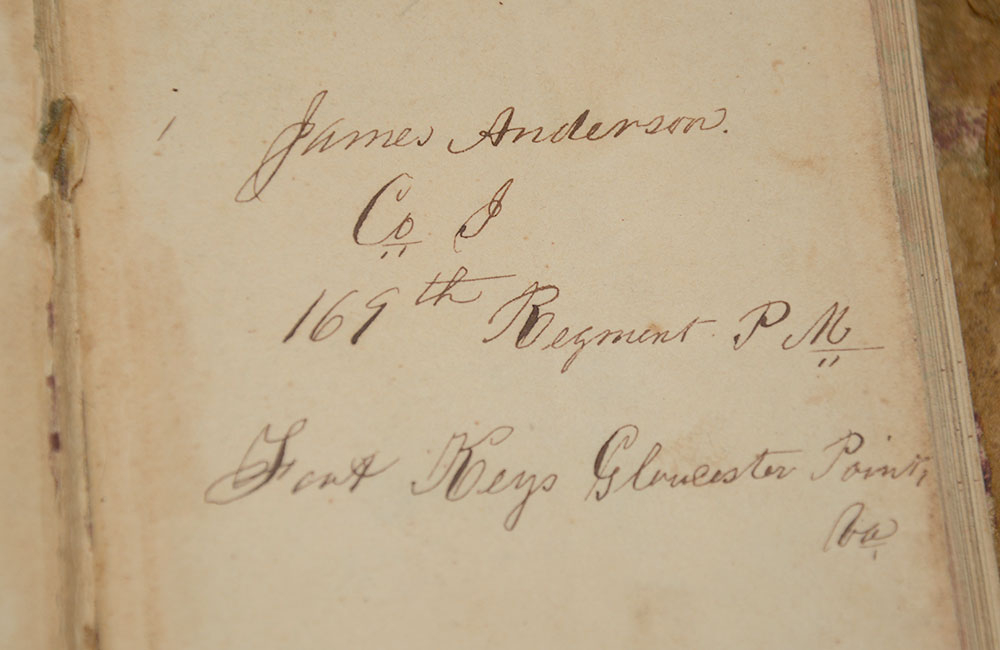 James Anderson.
Co I
169th Regment P M
Fort Keys Gloucester Point,
Va